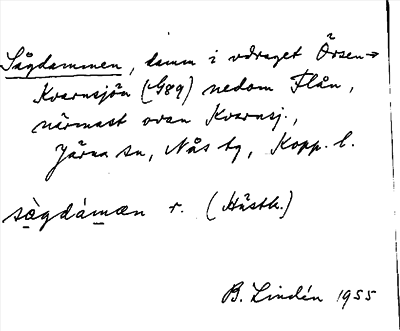 Sågdammen, damm i vdraget Örsen →
Kvarnsjön (G89) nedom Flån,
närmast ovan Kvarnsj.,
Järna sn, Nås tg, Kopp. l.
sàgdámæn r. (Hästb.)
B. Lindén 1955